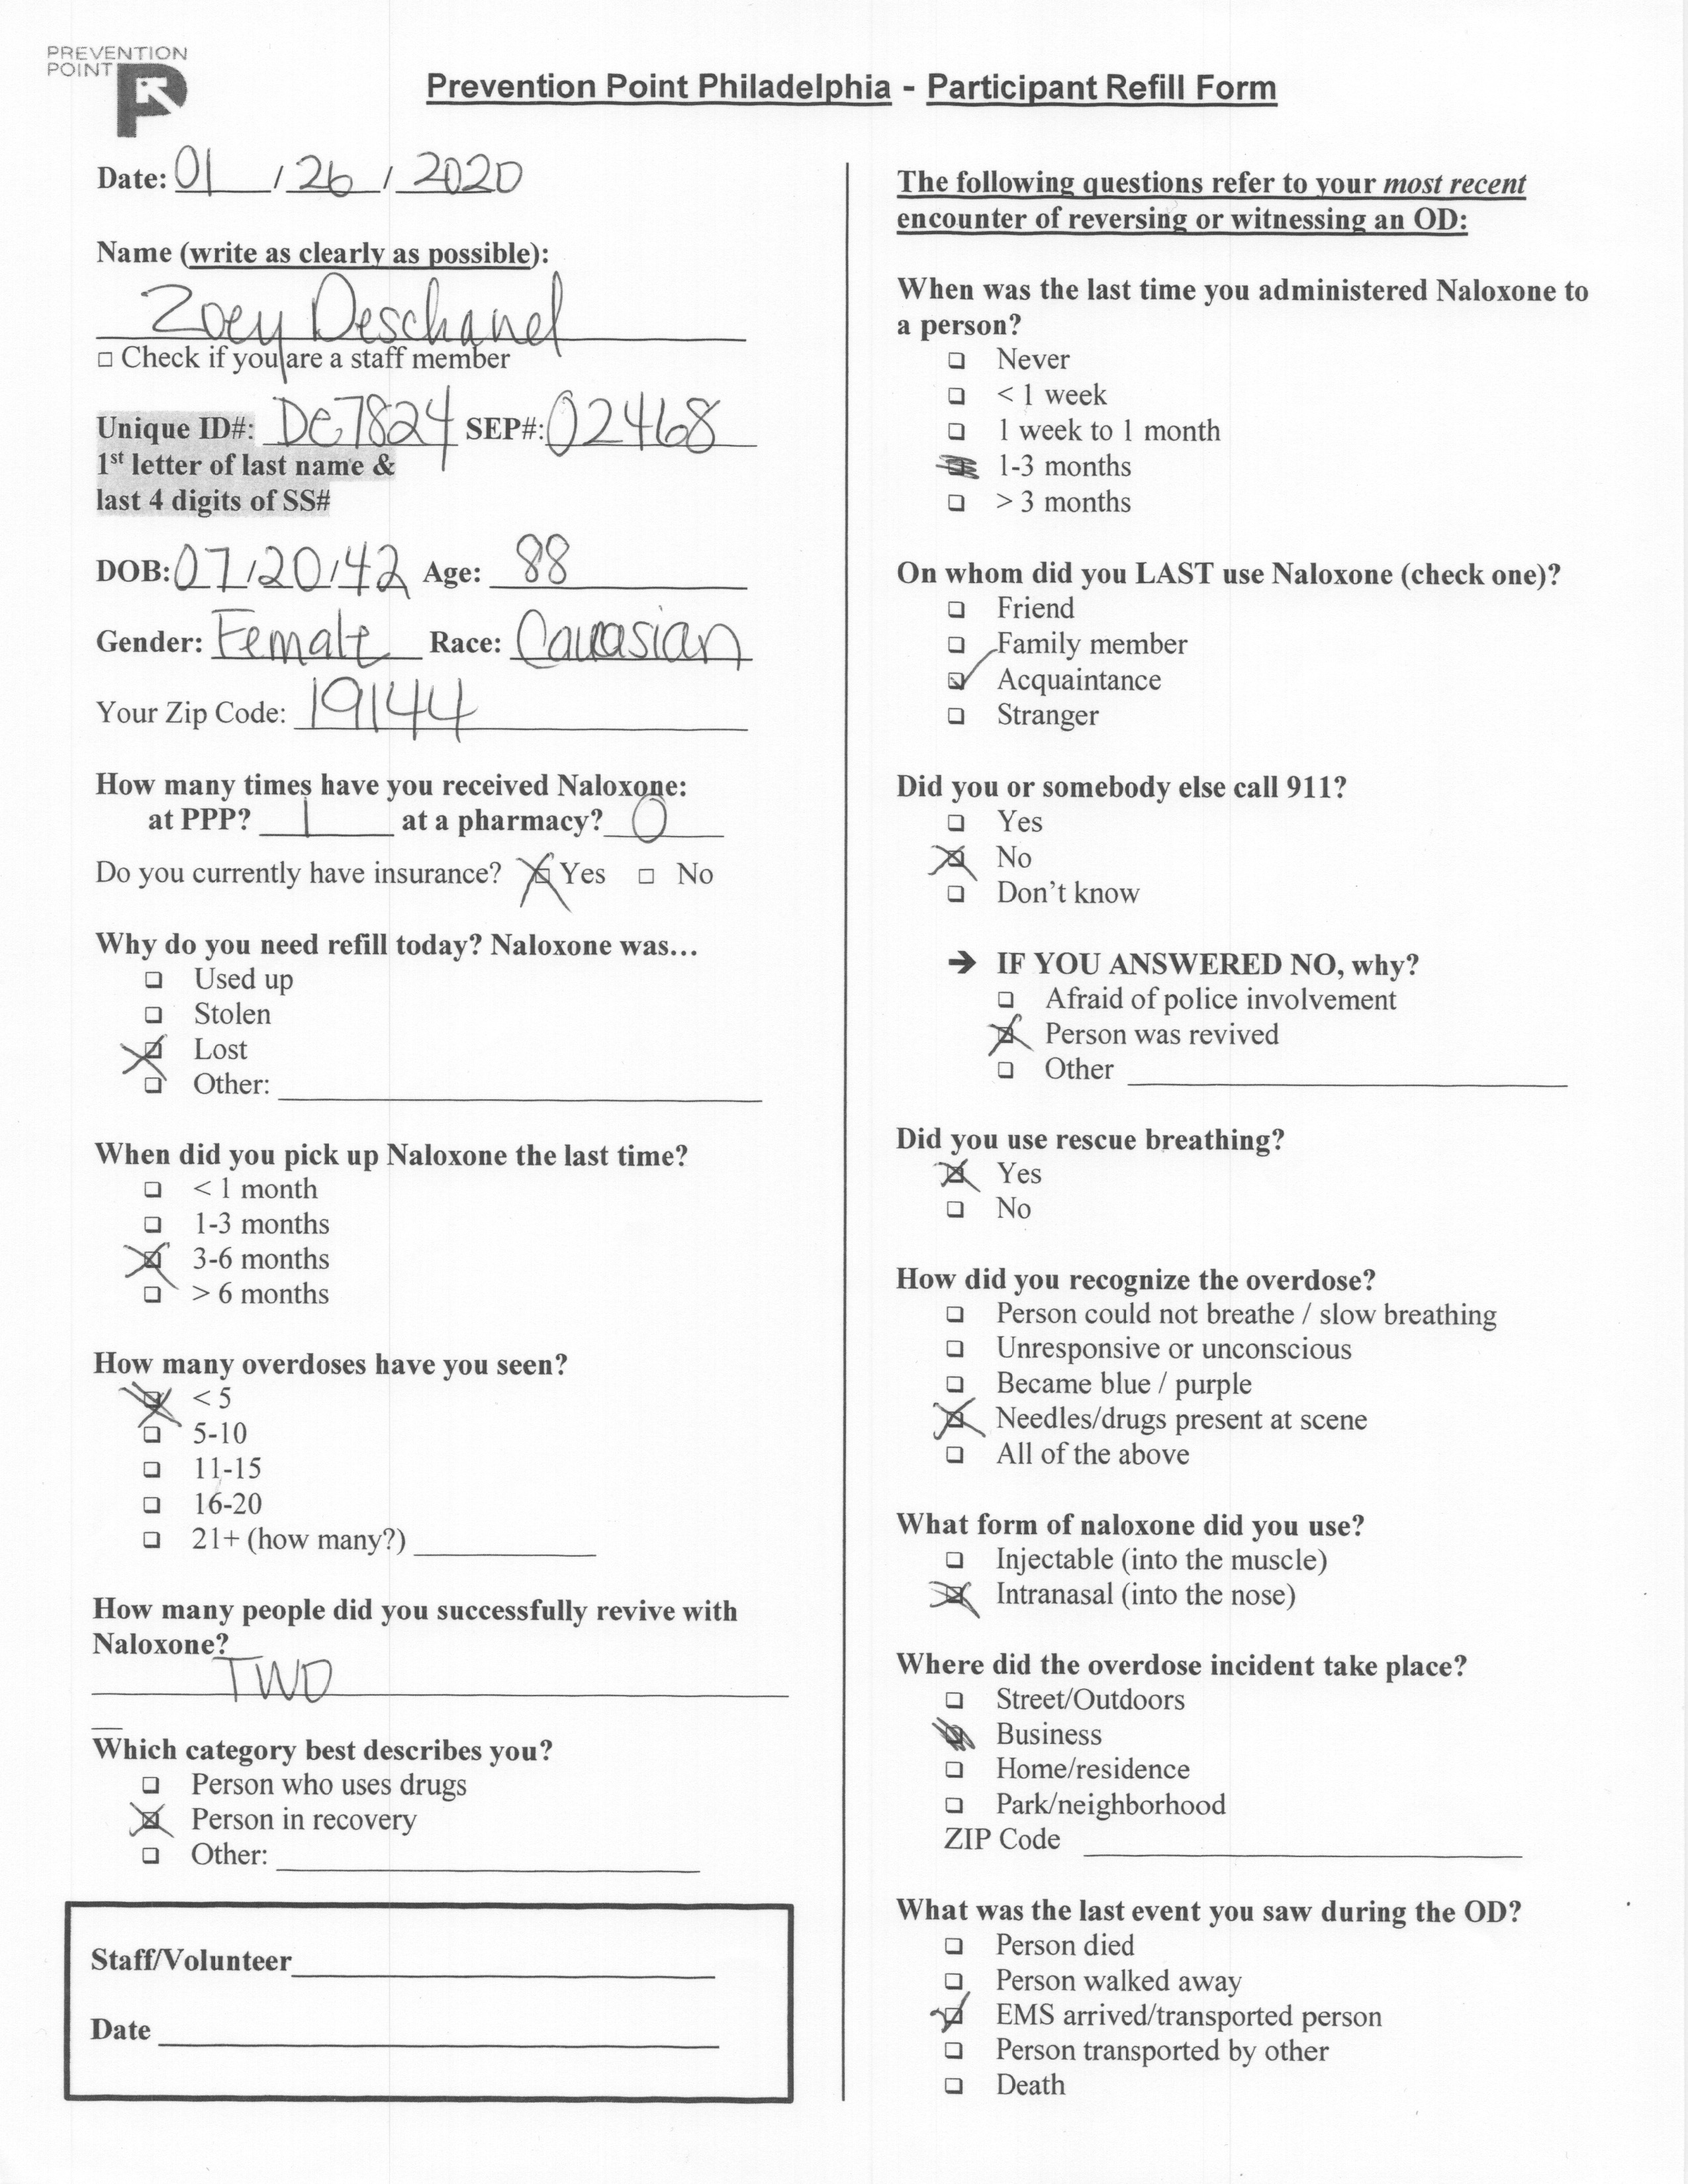 PREVENTION
POINT
Prevention Point Philadelphia - Participant Refill Form
Date: 01 / 26 / 2020
Name (write as clearly as possible):
Zoey Deschanel
☐ Check if you are a staff member
Unique ID#: De7824 SEP#: 02468
1st letter of last name &
last 4 digits of SS#
DOB: 07/20/42 Age: 88
Gender: Female Race: Caucasian
Your Zip Code: 19144
How many times have you received Naloxone:
at PPP? 1 at a pharmacy? 0
Do you currently have insurance? ☒ Yes ☐ No
Why do you need refill today? Naloxone was…
☐ Used up
☐ Stolen
☒ Lost
☐ Other:
When did you pick up Naloxone the last time?
☐ < 1 month
☐ 1-3 months
☒ 3-6 months
☐ > 6 months
How many overdoses have you seen?
☒ < 5
☐ 5-10
☐ 11-15
☐ 16-20
☐ 21+ (how many?)
How many people did you successfully revive with
Naloxone?
TWO
Which category best describes you?
☐ Person who uses drugs
☒ Person in recovery
☐ Other:
Staff/Volunteer
Date
The following questions refer to your most recent
encounter of reversing or witnessing an OD:
When was the last time you administered Naloxone to
a person?
☐ Never
☐ < 1 week
☐ 1 week to 1 month
☒ 1-3 months
☐ > 3 months
On whom did you LAST use Naloxone (check one)?
☐ Friend
☐ Family member
☑ Acquaintance
☐ Stranger
Did you or somebody else call 911?
☐ Yes
☒ No
☐ Don't know
➔ IF YOU ANSWERED NO, why?
☐ Afraid of police involvement
☒ Person was revived
☐ Other
Did you use rescue breathing?
☒ Yes
☐ No
How did you recognize the overdose?
☐ Person could not breathe / slow breathing
☐ Unresponsive or unconscious
☐ Became blue / purple
☒ Needles/drugs present at scene
☐ All of the above
What form of naloxone did you use?
☐ Injectable (into the muscle)
☒ Intranasal (into the nose)
Where did the overdose incident take place?
☐ Street/Outdoors
☒ Business
☐ Home/residence
☐ Park/neighborhood
ZIP Code
What was the last event you saw during the OD?
☐ Person died
☐ Person walked away
☑ EMS arrived/transported person
☐ Person transported by other
☐ Death